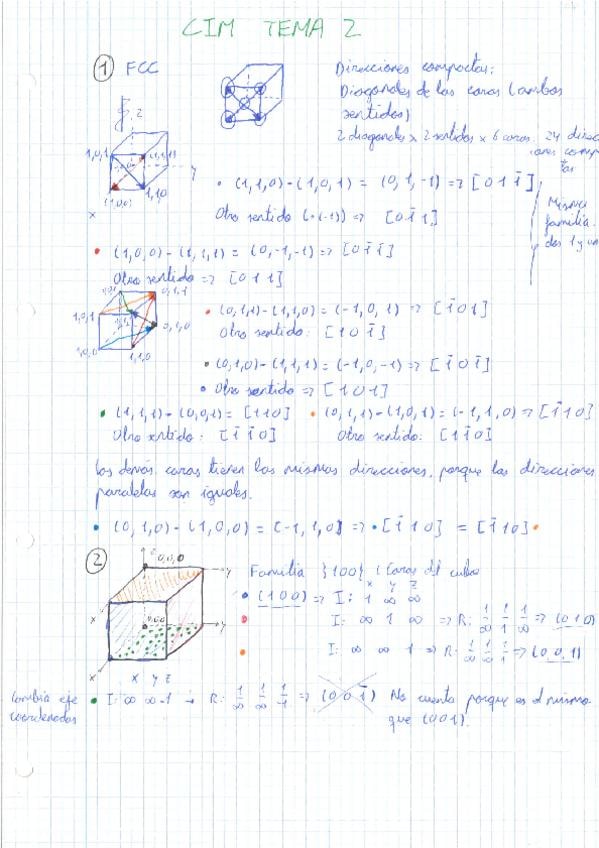 CIM TEMA 2
① FCC
Direcciones compactas:
Diagonales de las caras (ambos
sentidos)
2 diagonales x 2 sentidos x 6 caras. 24 direcc
iones compac
tas
z
1,0,1
(1,1,1)
y
(1,0,0)
1,1,0
x
• (1,1,0)-(1,0,1) = (0,1,-1) => [0 1 1̄]
Otro sentido (·(-1)) => [0 1̄ 1]
Misma
familia.
dos 1 y un
• (1,0,0)-(1,1,1) = (0,-1,-1) => [0 1̄ 1̄]
Otro sentido => [0 1 1]
0,1,1
1,0,1
0,1,0
1,0,0
1,1,0
• (0,1,1)-(1,1,0) = (-1,0,1) => [1̄ 0 1]
Otro sentido: [1 0 1̄]
• (0,1,0)-(1,1,1) = (-1,0,-1) => [1̄ 0 1̄]
• Otro sentido => [1 0 1]
• (1,1,1)-(0,0,1) = [1 1 0] • (0,1,1)-(1,0,1) = (-1,1,0) => [1̄ 1 0]
Otro sentido: [1̄ 1̄ 0] Otro sentido: [1 1̄ 0]
Las demás caras tienen las mismas direcciones, porque las direcciones
paralelas son iguales.
• (0,1,0)-(1,0,0) = (-1,1,0) => • [1̄ 1 0] = [1̄ 1 0] •
②
0,0,0
y
x
0,0,0
y
x
Familia {100} (Caras del cubo
x y z
• (1 0 0) => I: 1 ∞ ∞
• I: ∞ 1 ∞ => R: 1/∞ 1/1 1/∞ => (0 1 0)
• I: ∞ ∞ 1 => R: 1/∞ 1/∞ 1/1 => (0,0,1)
x y z
Cambia eje
coordenadas
• I: ∞ ∞ -1 → R: 1/∞ 1/∞ 1/-1 => (0 0 1̄) No cuenta porque es el mismo
que (001).